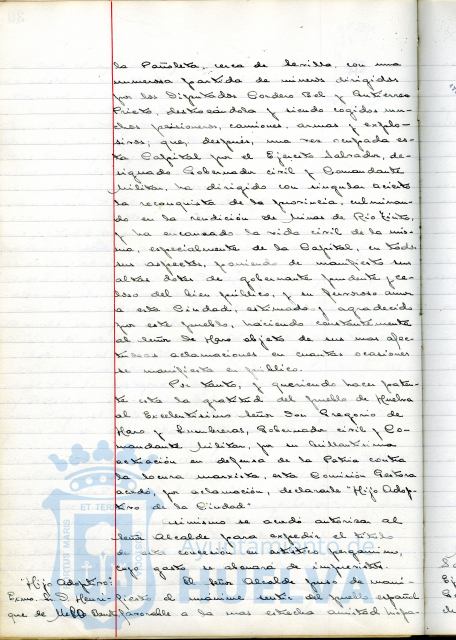 la Pañoleta, cerca de Sevilla, con una
numerosa partida de mineros dirigidos
por los Diputados Cordero Bel y Gutierrez
Prieto, destrozándola y siendo cogidos mu-
chos prisioneros, camiones, armas y explo-
sivos; que, después, una vez ocupada es-
ta Capital por el Ejercito Salvador, de-
signado Gobernador civil y Comandante
Militar, ha dirigido con singular acierto
la reconquista de la provincia, culminan-
do en la rendición de Minas de Rio Tinto,
y ha encauzado la vida civil de la mis-
ma, especialmente de la Capital, en todos
sus aspectos, poniendo de manifiesto sus
altas dotes de gobernante prudente y ce-
loso del bien público, y su fervoroso amor
a esta Ciudad, estimado y agradecido
por este pueblo, haciendo constantemente
al Señor de Haro objeto de sus mas afec-
tuosas aclamaciones en cuantas ocasiones
se manifiesta en público.
Por tanto, y queriendo hacer paten-
te esta la gratitud del pueblo de Huelva
al Excelentísimo Señor Don Gregorio de
Haro y Lumbreras, Gobernador civil y Co-
mandante Militar, por su brillantísima
actuación en defensa de la Patria contra
la locura marxista, esta Comisión Gestora
acordó, por aclamación, declararle "Hijo Adop-
tivo de la Ciudad"
Asimismo se acordó autorizar al
Señor Alcalde para expedir el título
de esta concesión en artístico pergamino,
cuyo gasto se abonará de imprevistos.
"Hijo Adoptivo: El Señor Alcalde puso de mani-
Exmo. Sr. D. Henri- fiesto el unánime sentir del pueblo español
que de favorable a la mas estrecha amistad hispa-
Ayuntamiento de
HUELVA
PORTUS MARIS
ET TERRAE